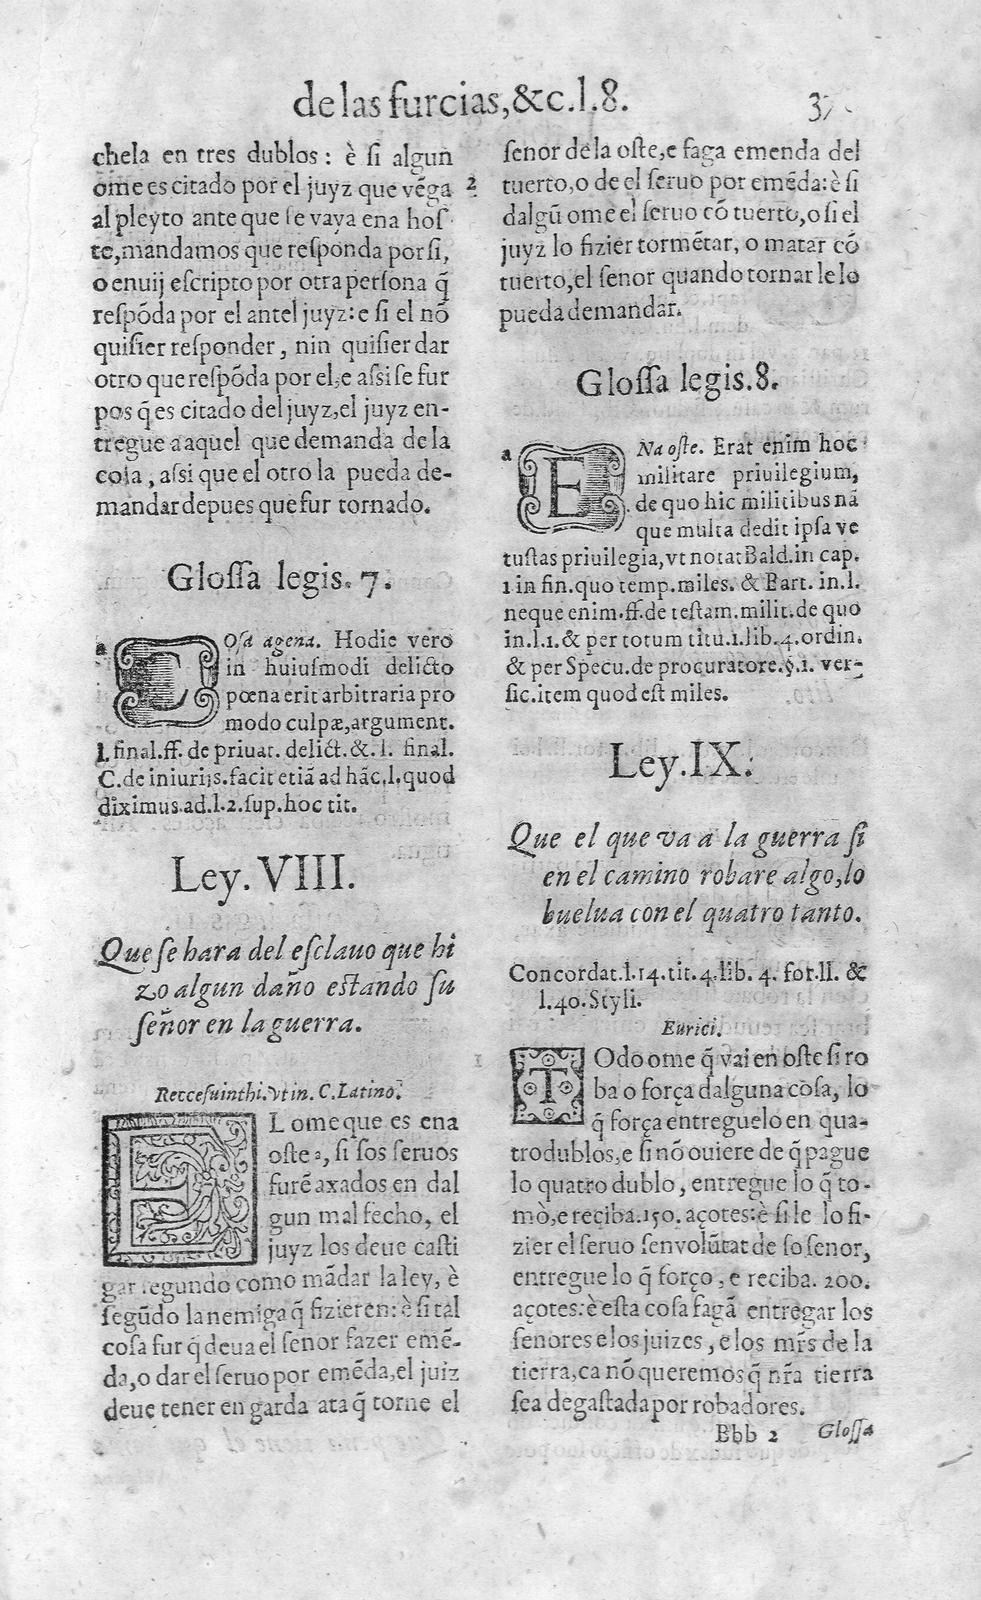 de las furcias, &c. l. 8.
chela en tres dublos : è ſi algun
ome es citado por el juyz que vẽga
al pleyto ante que ſe vaya ena hoſ
te, mandamos que reſponda por ſi,
o enuij eſcripto por otra perſona q̃
reſpõda por el antel juyz: e ſi el nõ
quiſier reſponder, nin quiſier dar
otro que reſpõda por el, e aſsi ſe fur
pos q̃ es citado del juyz, el juyz en-
tregue a aquel que demanda de la
coſa, aſsi que el otro la pueda de-
mandar depues que fur tornado.
Gloſſa legis. 7.
a COſa agena. Hodie vero
in huiuſmodi delicto
pœna erit arbitraria pro
modo culpæ, argument.
l. final. ff. de priuat. delict. & l. final.
C. de iniurijs. facit etiã ad hãc. l. quod
diximus. ad. l. 2. ſup. hoc tit.
Ley. VIII.
Que ſe hara del eſclauo que hi
zo algun daño eſtando ſu
ſeñor en la guerra.
Reccesuinthi. Vt in. C. Latino.
EL ome que es ena
oſte a, ſi ſos ſeruos
furẽ axados en dal
gun mal fecho, el
juyz los deue caſti
gar ſegundo como mãdar la ley, è
ſegũdo la nemiga q̃ fizieren: è ſi tal
coſa fur q̃ deua el ſenor fazer emẽ-
da, o dar el ſeruo por emẽda, el juiz
deue tener en garda ata q̃ torne el
2 ſenor de la oſte, e faga emenda del
tuerto, o de el ſeruo por emẽda: è ſi
dalgũ ome el ſeruo cõ tuerto, o ſi el
juyz lo fizier tormẽtar, o matar cõ
tuerto, el ſenor quando tornar le lo
pueda demandar.
Gloſſa legis. 8.
a ENa oſte. Erat enim hoc
militare priuilegium,
de quo hic militibus nã
que multa dedit ipſa ve
tuſtas priuilegia, vt notat Bald. in cap.
1 in fin. quo temp. miles. & Bart. in. l.
neque enim. ff. de teſtam. milit. de quo
in. l. 1. & per totum titu. 1. lib. 4. ordin.
& per Specu. de procuratore. §. 1. ver-
ſic. item quod eſt miles.
Ley. IX.
Que el que va a la guerra ſi
en el camino robare algo, lo
buelua con el quatro tanto.
Concordat. l. 14. tit. 4. lib. 4. for. ll. &
l. 40. Styli.
Eurici.
1 TOdo ome q̃ vai en oſte ſi ro
ba o força dalguna coſa, lo
q̃ força entreguelo en qua-
trodublos, e ſi nõ ouiere de q̃ pague
lo quatro dublo, entregue lo q̃ to-
mò, e reciba. 150. açotes: è ſi le lo fi-
zier el ſeruo ſen volũtat de ſo ſenor,
entregue lo q̃ forço, e reciba. 200.
açotes: è eſta coſa fagã entregar los
ſenores e los juizes, e los mr̃s de la
tierra, ca nõ queremos q̃ nr̃a tierra
ſea degaſtada por robadores.
Bbb 2 Gloſſa